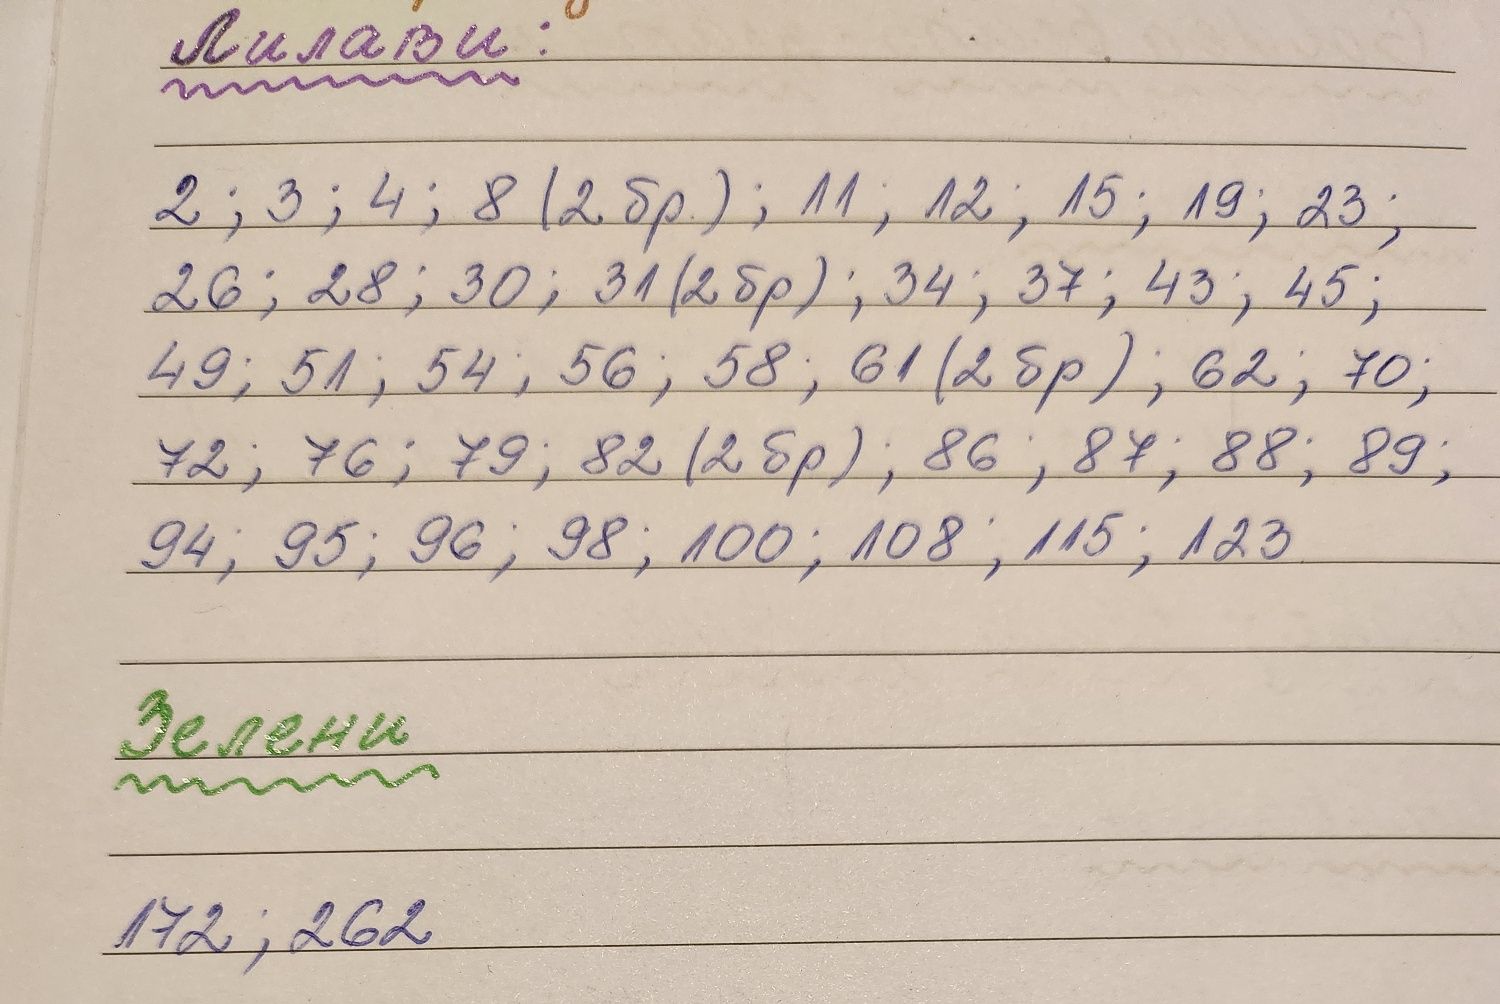 Лилави:
2; 3; 4; 8 (2 бр.); 11; 12; 15; 19; 23;
26; 28; 30; 31 (2 бр); 34; 37; 43; 45;
49; 51; 54; 56; 58; 61 (2 бр); 62; 70;
72; 76; 79; 82 (2 бр); 86; 87; 88; 89;
94; 95; 96; 98; 100; 108; 115; 123
Зелени
172; 262